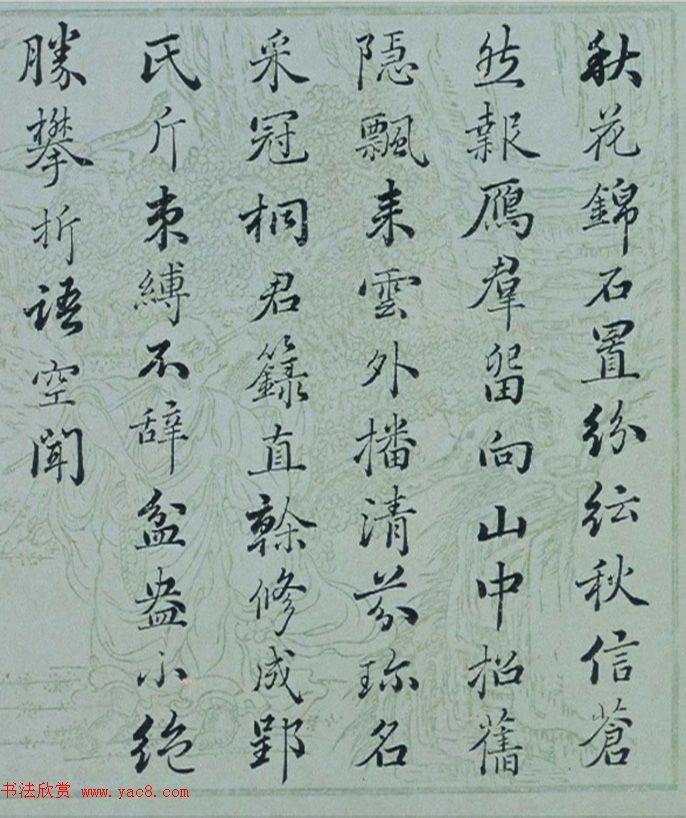 秋花錦石置紛紜秋信蒼
然報鴈羣留向山中招舊
隱飄来雲外播清芬珎名
采冠桐君籙直榦修成郢
氏斤束縛不辭盆盎小絶
勝攀折語空聞
书法欣赏 www.yac8.com